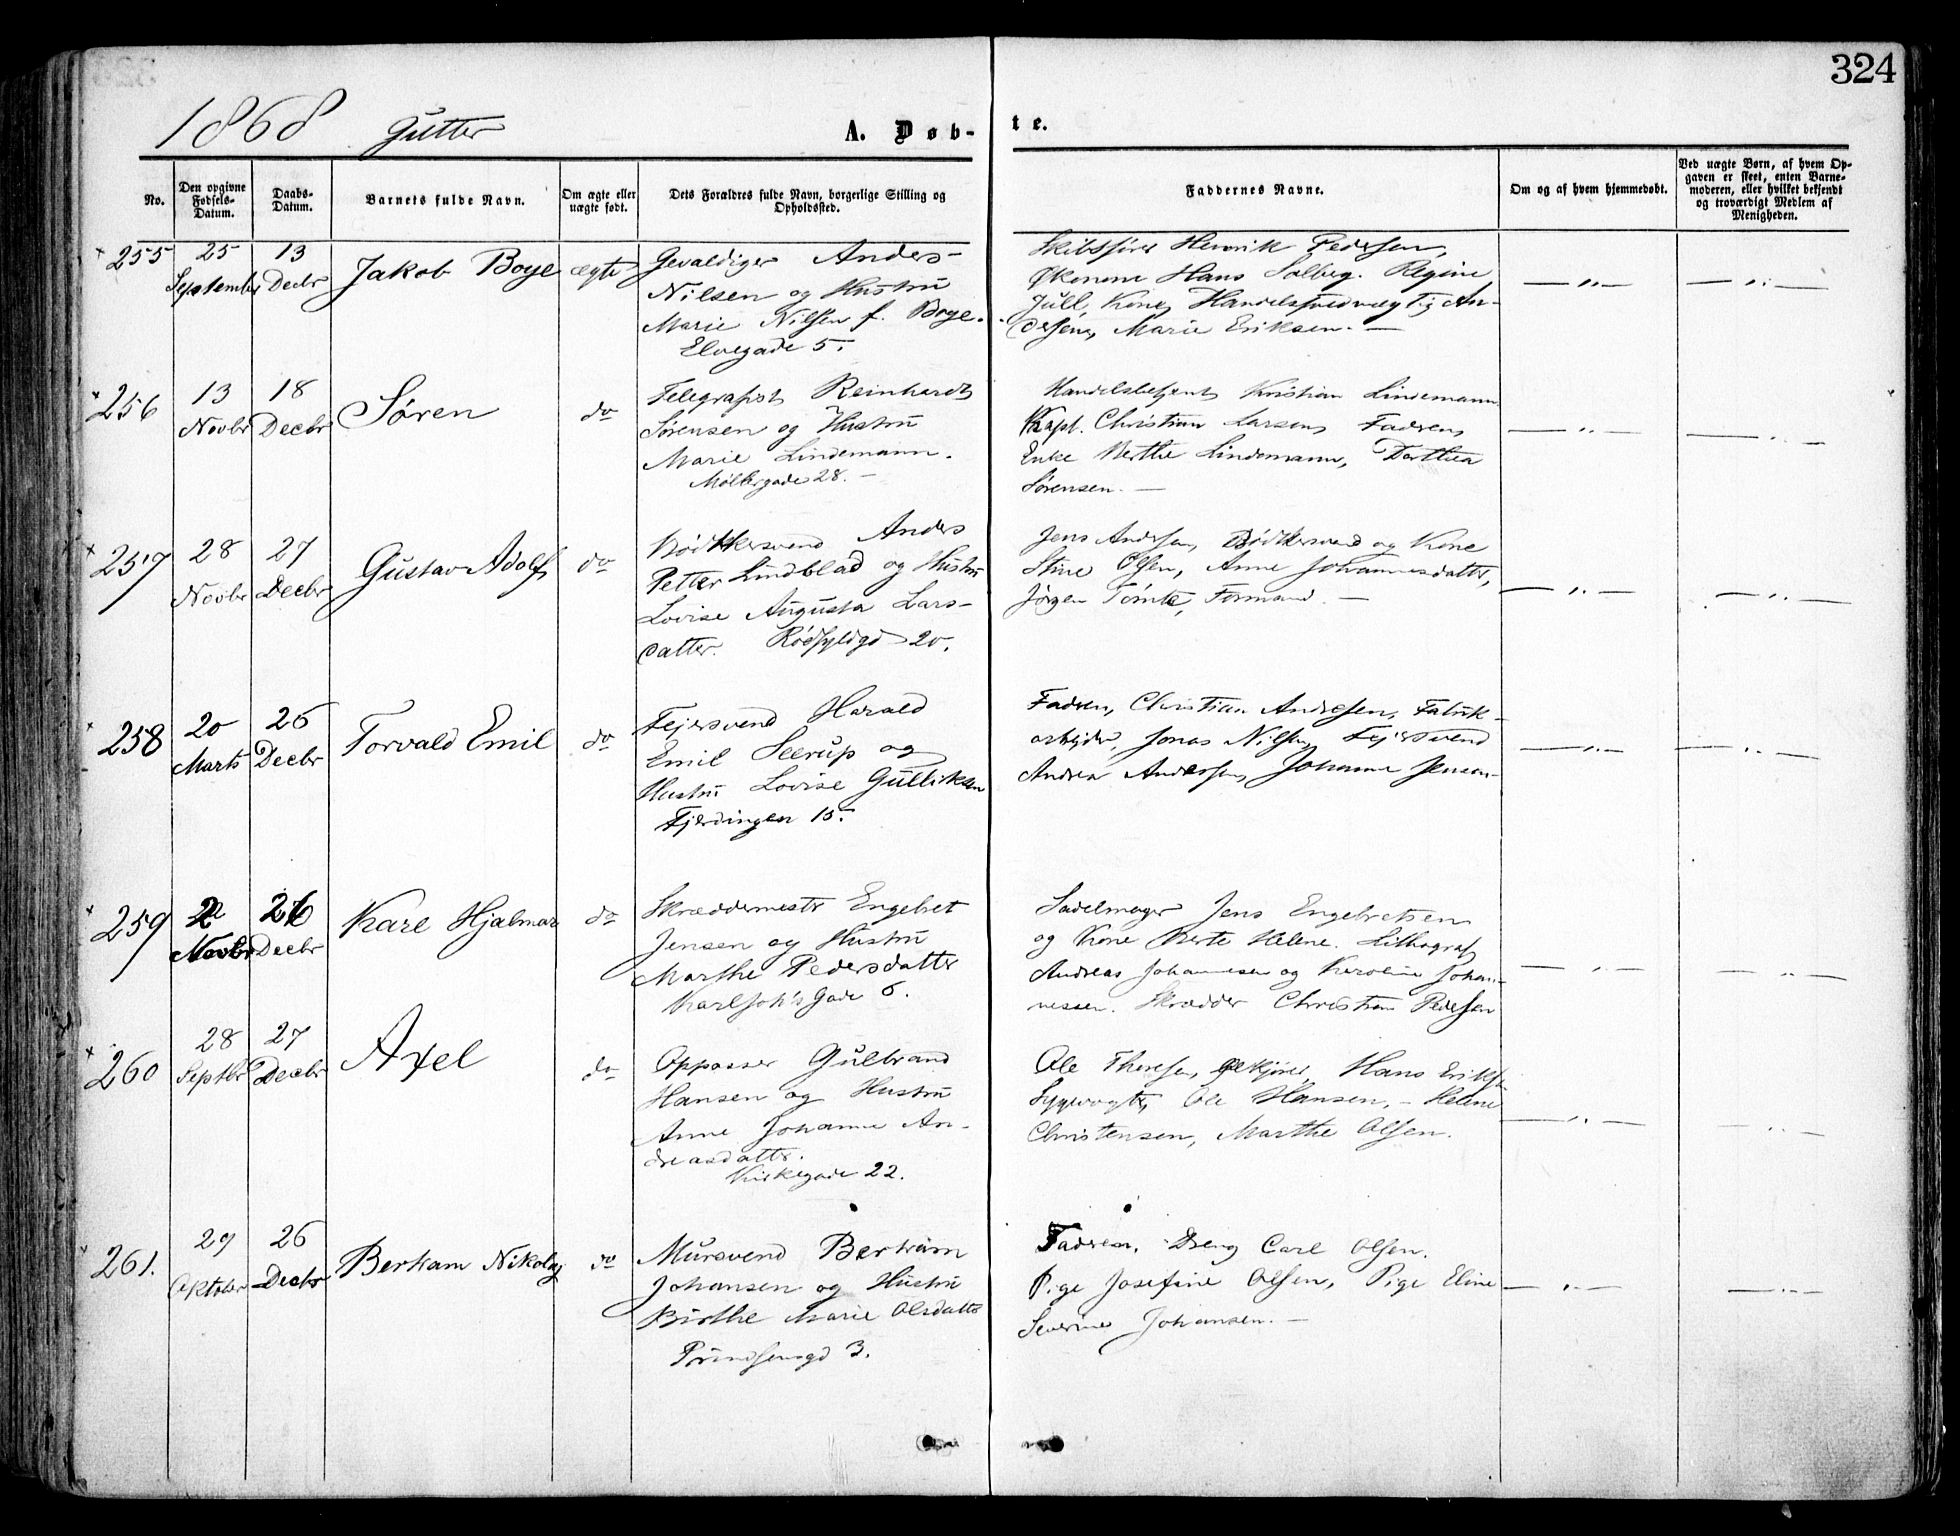 324
1868 Gutter
A. Døb-
te.
No.
Den opgivne
Fødsels-
Datum.
Daabs-
Datum.
Barnets fulde Navn.
Om ægte eller
uægte født.
Dets Forældres fulde Navn, borgerlige Stilling og
Opholdssted.
Faddernes Navne.
Om og af hvem hjemmedøbt.
Ved uægte Børn, af hvem Op-
gaven er skeet, enten Barne-
moderen, eller hvilket bekjendt
og troværdigt Medlem af
Menigheden.
255
25
September
13
Decbr
Jakob Boye
ægte
Gevaldiger Anders
Nilsen og Hustru
Marie Nilsen f. Boye.
Elvegade 5.
Skibsfører Henrik Pedersen,
Økonom Hans Solberg. Regine
Jull, Kone, Handelsfuldmægtig An-
dersen, Marie Eriksen. —
— „ —
— „ —
256
13
Novbr
18
Decbr
Søren
do
Telegrafist Reinhardt
Sørensen og Hustru
Marie Lindemann.
Møllergade 28. —
Handelsbetjent Kristian Lindemann
Kapt. Christian Larsen, Fadren,
Enke Berthe Lindemann, Dorthea
Sørensen. —
— „ —
— „ —
257
28
Novbr
27
Decbr
Gustav Adolf
do
Bødkersvend Anders
Petter Lindblad og Hustru
Lovise Augusta Lars-
datter. Rødfyldgd 20.
Jens Andersen, Bødkersvend og Kone
Stine Olsen, Anne Johannesdatter,
Jørgen Tømte, Formand. —
— „ —
— „ —
258
20
Marts
26
Decbr
Torvald Emil
do
Fejersvend Harald
Emil Seerup og
Hustru Lovise Gulliksen
Fjerdingen 15.
Fadren, Christian Andresen, Fabrik-
arbejder, Jonas Nilsen Fejersvend
Andrea Andersen, Johanne Jensen
— „ —
— „ —
259
2
Novbr
26
Decbr
Karl Hjalmar
do
Skræddermestr Engebret
Jensen og Hustru
Marthe Pedersdatter
Karl Joh's Gade 6.
Sadelmager Jens Engebretsen
og Kone Berte Helene. Lithograf
Andreas Johannesen og Karoline Johan-
nessen. Skrædder Christian Pedersen
— „ —
— „ —
260
28
Septbr
27
Decbr
Axel
do
Oppasser Gulbrand
Hansen og Hustru
Anne Johanne An-
dreasdatter.
Kirkegade 22.
Ole Thoresen, Hans Eriksen
Sygevogter, Ole Hansen, - Helene
Christensen, Marthe Olsen.
— „ —
— „ —
261.
29
Oktober
26
Decbr
Bertram Nikolay
do
Mursvend Bertram
Johansen og Hustru
Birthe Marie Olsdatter
Prindsensgd 3.
Fadren. Dreng Carl Olsen.
Pige Josefine Olsen, Pige Eline
Severine Johansen. —
— „ —
— „ —